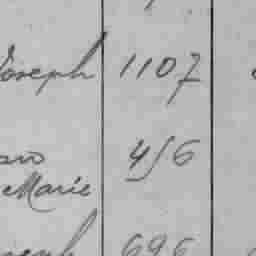 Joseph 1107
456
Marie
696